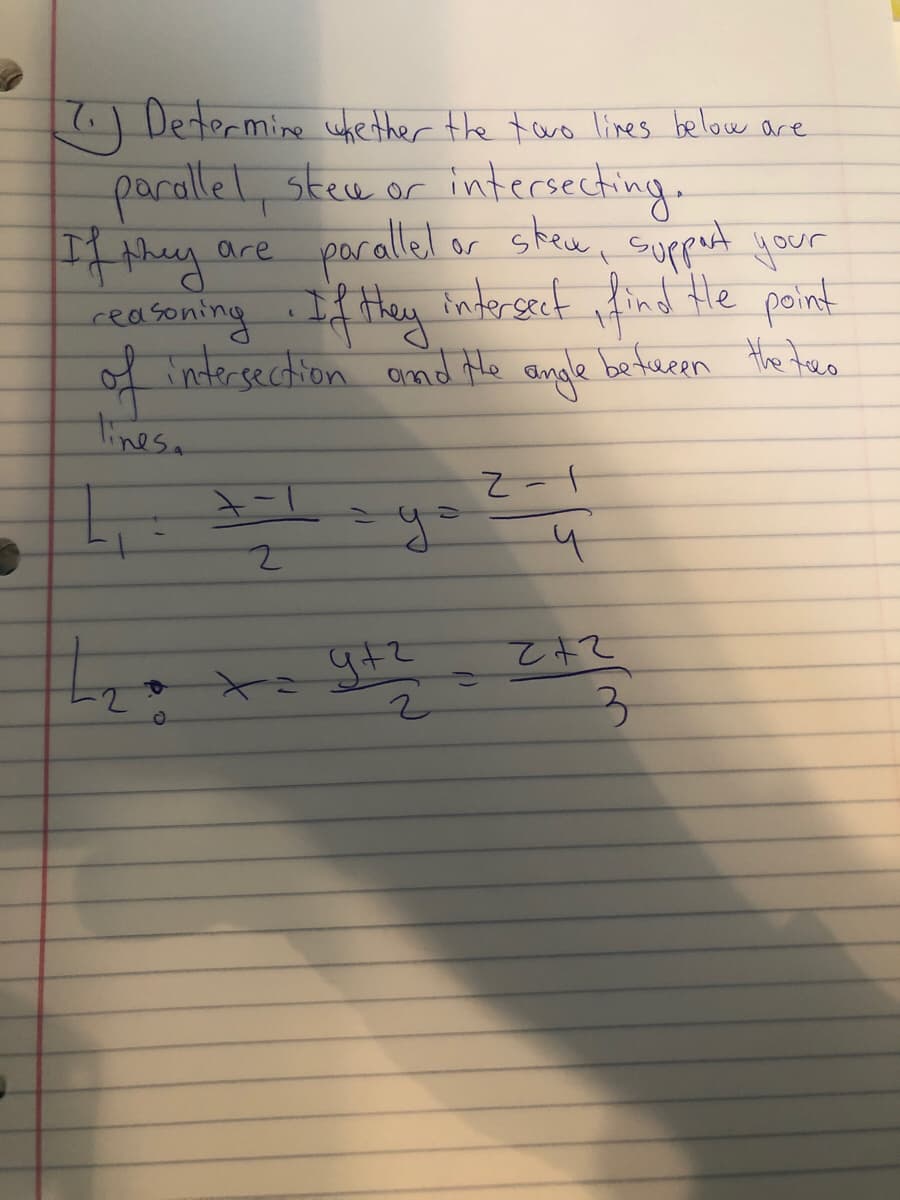 7.) Determine whether the two lines below are
parallel, skew or intersecting.
If they are parallel or skew, support your
reasoning. If they intersect, find the point
of intersection and the angle between the two
lines.
L₁: (x-1)/2 = y = (z-1)/4
L₂: x = (y+2)/2 = (z+2)/3